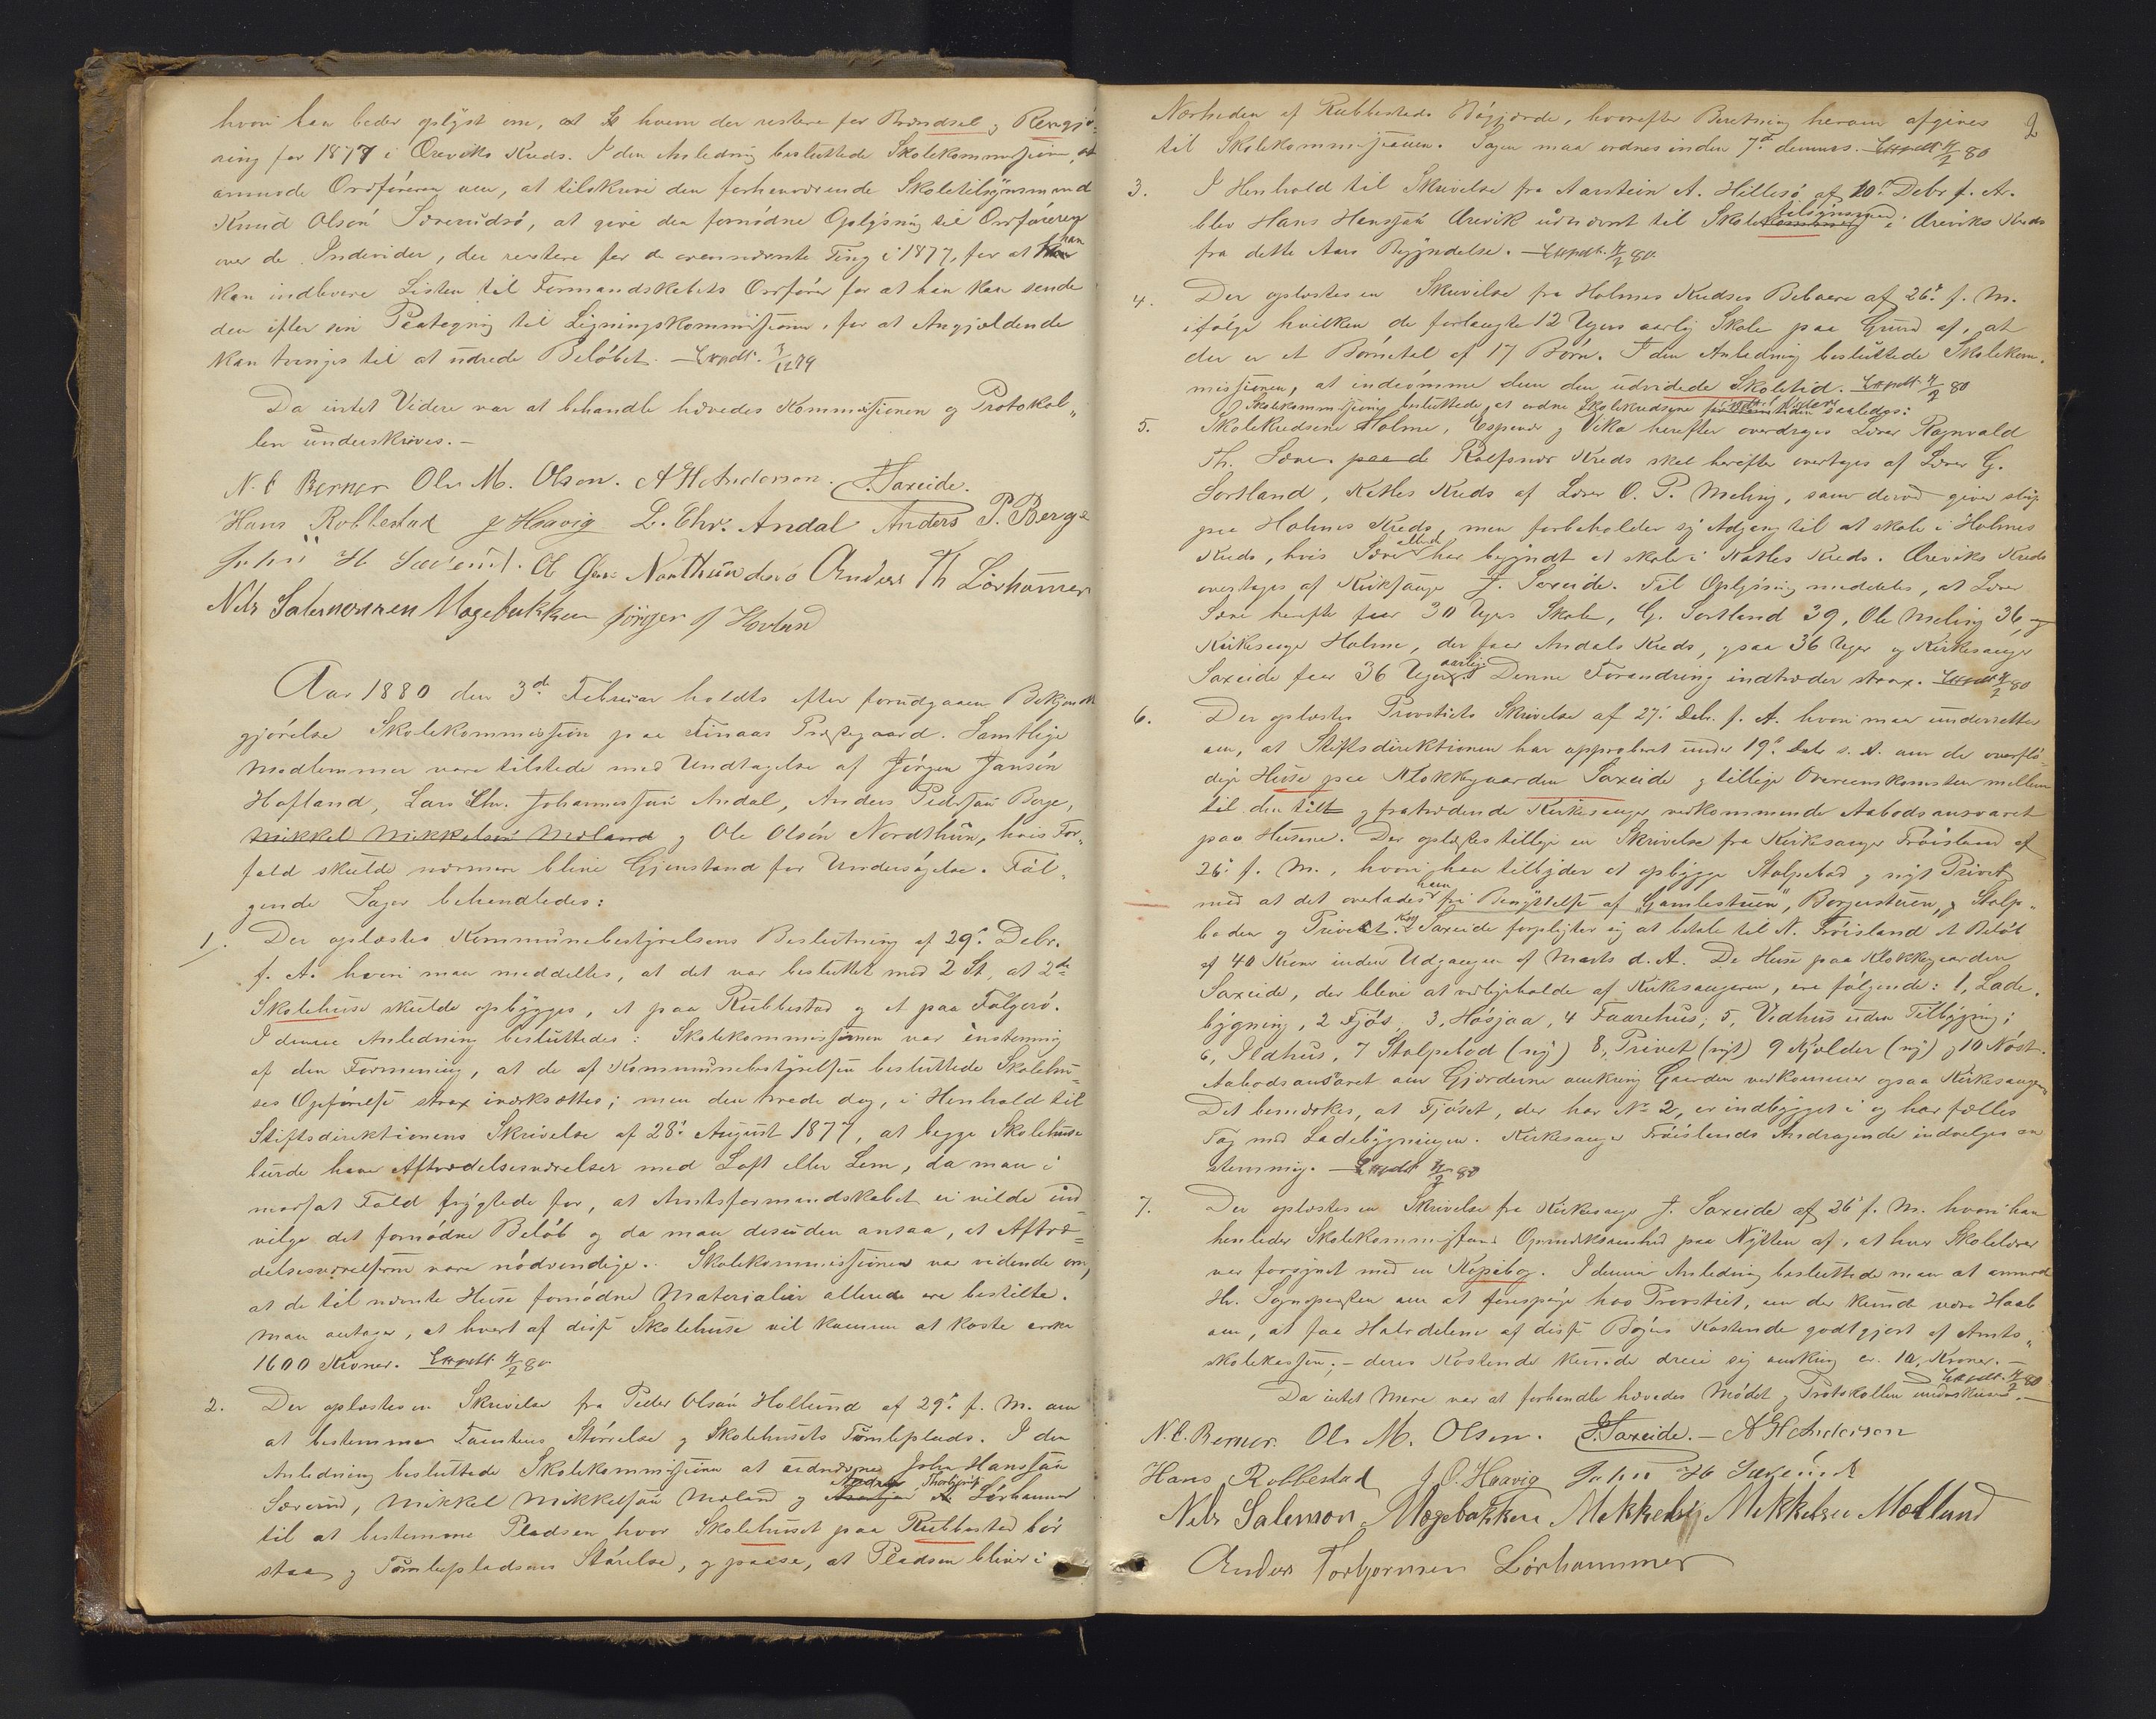 hvori han beder oplyst om, at hvem der restere for Brændsel og Rengjö-
ring for 1877 i Æreviks Kreds. I den Anledning besluttede Skolekommissionen, at
anmode Ordföreren om, at tilskrive den forhenværende Skoletilsynsmand
Knud Olsön Sæverudsö, at give den fornödne Oplysning til Ordföreren
over de Individer, der restere for de ovennævnte Ting i 1877, for at han
kan indlevere Listen til Formandskabets Ordförer for at han kan sende
den efter sin Paategning til Ligningskommissionen, for at Angjældende
kan tvinges til at udrede Belöbet. Expdt. 3/12 79
Da intet Videre var at behandle hævedes Kommissionen og Protokol-
len underskrives.
N. C Berner Ole M. Olsen. A H Anderson. J. Saxeide.
Hans Robbestad J Haavig L. Chr. Andal Anders P. Berge
John H Sæverud. O Nordhun Anders Th Lörhamer
Nels Salemonsen Mogebakken Jörgen J Hovland
Aar 1880 den 3d Februar holdts efter forudgaaen Bekjendt-
gjörelse Skolekommission paa Finaas Præstegaard. Samtlige
Medlemmer vare tilstede med Undtagelse af Jörgen Jansön
Hafland, Lars Chr. Johannessön Andal, Anders Pedersön Berge,
Mikkel Mikkelsön Moland og Ole Olsön Nordhun, hvis For-
fald skulde nærmere blive Gjenstand for Undersögelse. Föl-
gende Sager behandledes:
1. Der oplæstes Kommunebestyrelsens Beslutning af 29de Debr.
f. A. hvori man meddeltes, at det var besluttet med 2 St, at 2de
Skolehuse skulde opbygges, et paa Rubbestad og et paa Folgerö.
I denne Anledning besluttedes: Skolekommissionen var enstemmig
af den Formening, at de af Kommunebestyrelsen besluttede Skolehu-
ses Opförelse strax iværksættes; men den troede dog, i Henhold til
Stiftsdirektionens Skrivelse af 28de August 1877, at begge Skolehuse
burde have Aftrædelsesværelser med Loft eller Lem, da man i
modsat Fald frygtede for, at Amtsformandskabet ei vilde ind-
vilge det fornödne Belöb og da man desuden ansaa, at Aftræ-
delsesværelserne vare nödvendige. Skolekommissionen var vidende om,
at de til nævnte Huse fornödne Materialier allerede ere bestilte.
Man antager, at hvert af disse Skolehuse vil komme at koste cirka
1600 Kroner. Expdt 4/2 80
2. Der oplæstes en Skrivelse fra Peder Olsön Hollund af 29de f. M. om
at bestemme Tomtens Störrelse og Skolehusets Tömteplads. I den
Anledning besluttede Skolekommissionen at udnævne John Hanssön
Sæverud, Mikkel Mikkelsön Moland og Anders Thorbjörns. Lörhammer
til at bestemme Pladsen hvor Skolehuset paa Rubbestad bör
staa og Tömtepladsens Störelse, og paase, at Pladsen bliver i
2
Nærheden af Rubbestads Bögjærde, hvorefter Beretning herom afgives
til Skolekommissionen. Sagen maa ordnes inden 7de dennes. Expdt 4/2 80
3. I Henhold til Skrivelse fra Aarstein A. Hillesö af 10de Debr f. A.
blev Hans Hanssön Ærevik udnævnt til Skoletilsynsmand i Æreviks Kreds
fra dette Aars Begyndelse. Expdt. 4/2 80.
4. Der oplæstes en Skrivelse fra Holmes Kredses Beboere af 26de f. M.
ifölge hvilken de forlangte 12 Ugers aarlig Skole paa Grund af, at
der er et Börnetal af 17 Börn. I den Anledning besluttede Skolekom-
missionen, at indrömme dem den udvidede Skoletid. Expdt 4/2 80
Skolekommissionen besluttede at ordne Skolekredsene saaledes:
5. Skolekredsene Holme, Espevær og Vika herefter overdrages Lærer Ragnvald
Th. Sæve. paa d Rolfsnær Kreds skal herefter overtages af Lærer G.
Sortland, Katles Kreds af Lærer O. P. Meling, som derved giver slip
paa Holmes Kreds, men forbeholder sig Adgang til at skole i Holmes
Kreds, hvis Sæve allered har begyndt at skole i Katles Kreds. Æreviks Kreds
overtages af Kirksanger J. Saxeide. Til Oplysning meddeles, at Lærer
Sæve herefter faar 30 Ugers Skole, G. Sortland 39, Ole Meling 36, og
Kirkesanger Holme, der faar Andals Kreds, ogsaa 36 Uger og Kirkesanger
Saxeide faar 36 Uger aarlig. Denne Forandring indtræder strax. Expdt 4/2 80
6. Der oplæstes Provstiets Skrivelse af 27de Debr. f. A. hvori man underrettes
om, at Stiftsdirektionen har approberet under 19de Debr s. A. om de overflö-
dige Huse paa Klokkergaarden Saxeide og tillige Overeenskomsten mellem
til den tilt og fratrædende Kirkesanger vedkommende Aabodsansvaret
paa Husene. Der oplæstes tillige en Skrivelse fra Kirkesanger Tröisland af
26de f. M., hvori han tilbyder at opbygge Stolpebod og nyt Privet
med at det overlades ham fri Benyttelse af "Gamlestuen", Borgerstuen, og Stolp-
boden og Privetet. Saxeide forpligter sig at betale til N. Tröisland et Belöb
af 40 Kroner inden Udgangen af Marts d. A. De Huse paa Klokkergaarden
Saxeide, der blive at vedligeholde af Kirkesangeren, ere fölgende: 1, Lade-
bygning, 2 Fjös, 3, Hösjaa, 4 Faarehus; 5, Vedhus uden Tilbygning;
6, Ildhus, 7 Stolpebod (ny) 8, Privet (nyt) 9 Kjælder (ny) og 10 Nöst.
Aabodsansvaret om Gjærderne omkring Gaarden vedkommer ogsaa Kirkesangeren
Det bemærkes, at Fjöset, der har No 2, er indbygget i og har fælles
Tag med Ladebygningen. Kirkesanger Tröislands Andragende indvilges en-
stemmig. Expdt 4/2 80
7. Der oplæstes en Skrivelse fra Kirkesanger J. Saxeide af 26de f. M. hvori han
henleder Skolekommissionens Opmærksomhed paa Nytten af, at hver Skolelærer
var forsynet med en Kopibog. I denne Anledning besluttede man at anmode
Hr. Sognepresten om at forespörge hos Provstiet, om der kunde være Haab
om, at faa Halvdelene af disse Bögers Kostende godtgjort af Amts-
skolekassen; - deres Kostende kunde dreie sig omkring ca. 10, Kroner. -
Expdt. 4/2 80
Da intet Mere var at forhandle hævedes Mödet og Protokollen underskrives.
N. C. Berner. Ole M. Olsen. J. Saxeide. - A H Anderson
Hans Robbestad J. O. Haavig John H Sæverud
Nels Salemon. Mogebakken Mekkel Mekkelsen Moeland
Anders Torbjornsen Lörhammer